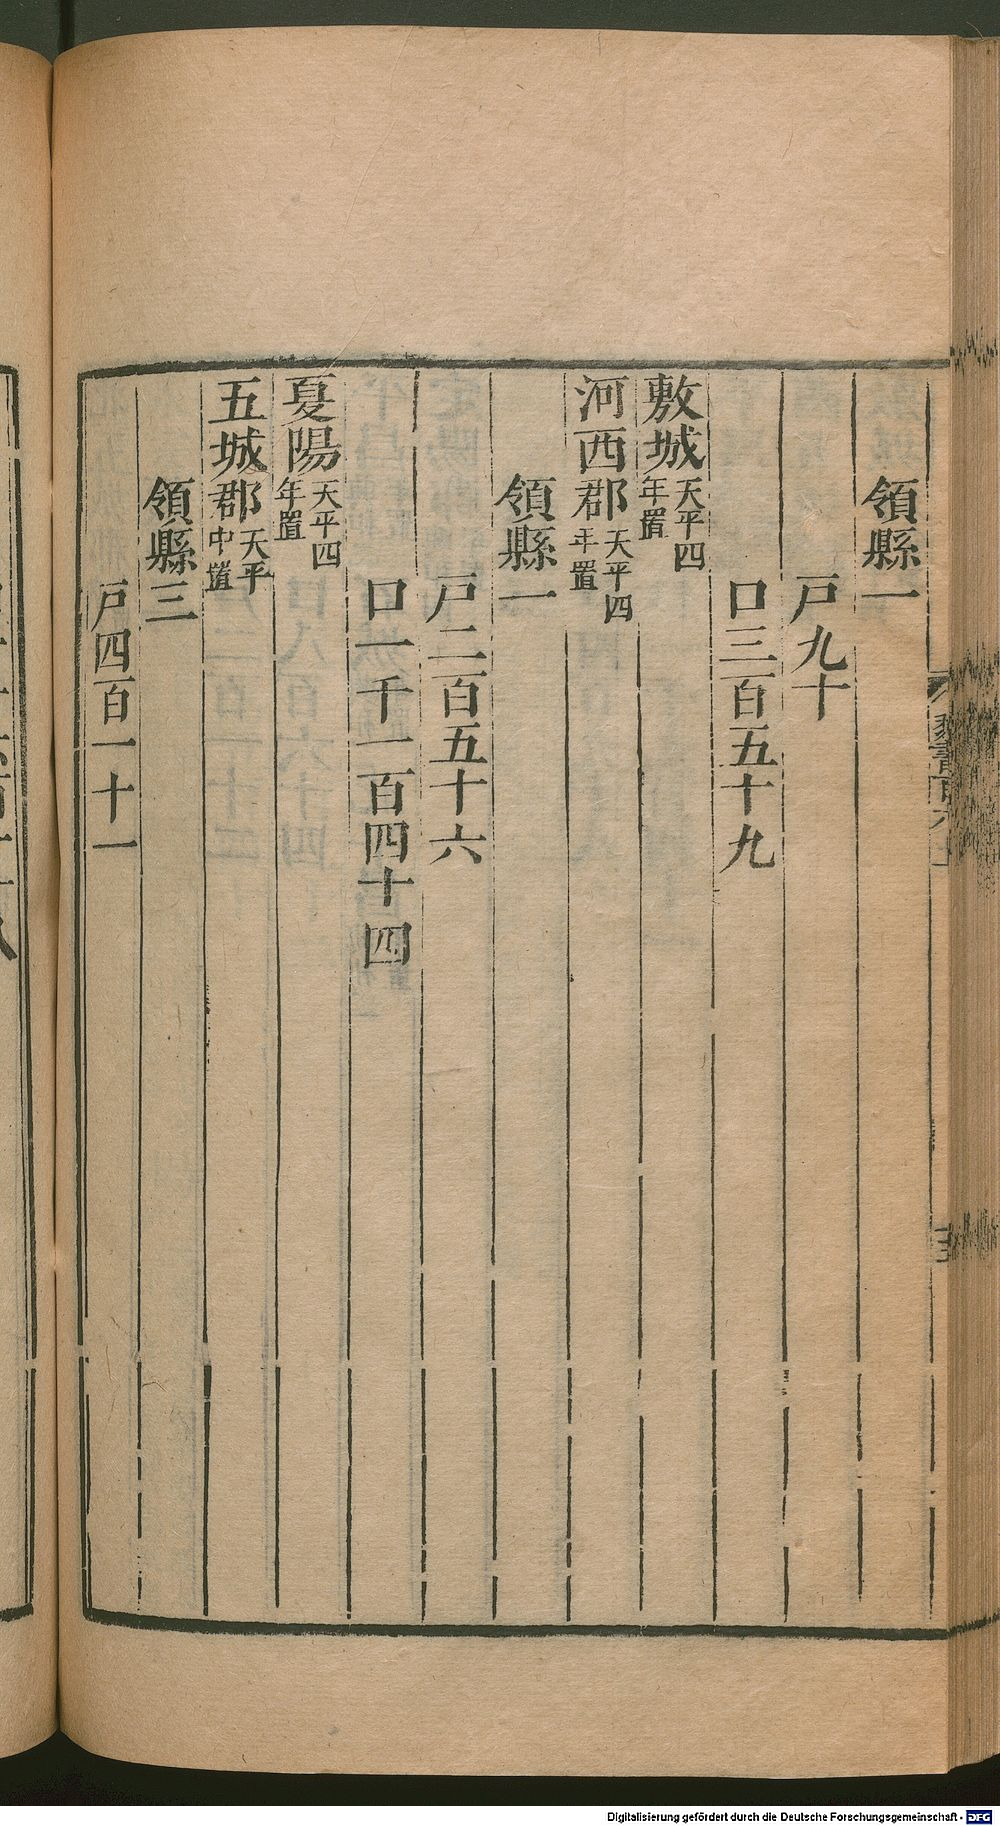 領縣一
戸九十
口三百五十九
敷城天平四年置
河西郡天平四年置
領縣一
戸二百五十六
口一千一百四十四
夏陽天平四年置
五城郡天平中置
領縣三
戸四百一十一
Digitalisierung gefördert durch die Deutsche Forschungsgemeinschaft - DFG